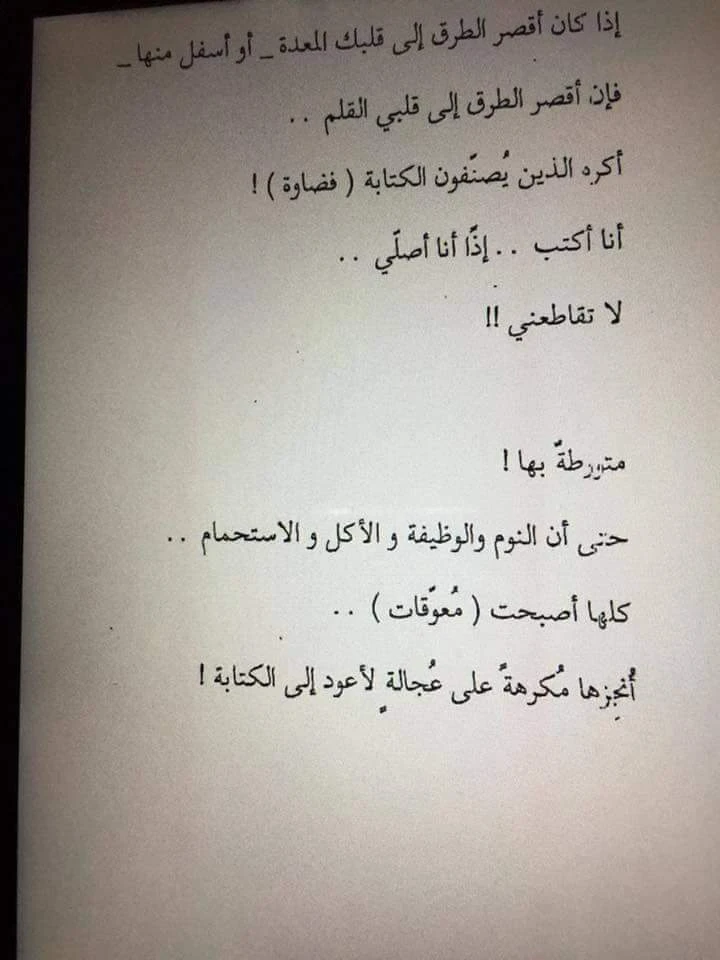 إذا كان أقصر الطرق إلى قلبك المعدة _ أو أسفل منها _
فإن أقصر الطرق إلى قلبي القلم . .
أكره الذين يُصنّفون الكتابة ( فضاوة ) !
أنا أكتب . . إذًا أنا أصلّي . .
لا تقاطعني !!
متورطةٌ بها !
حتى أن النوم والوظيفة و الأكل و الاستحمام . .
كلها أصبحت ( مُعوّقات ) . .
أُنجِزها مُكرهةً على عُجالةٍ لأعود إلى الكتابة !